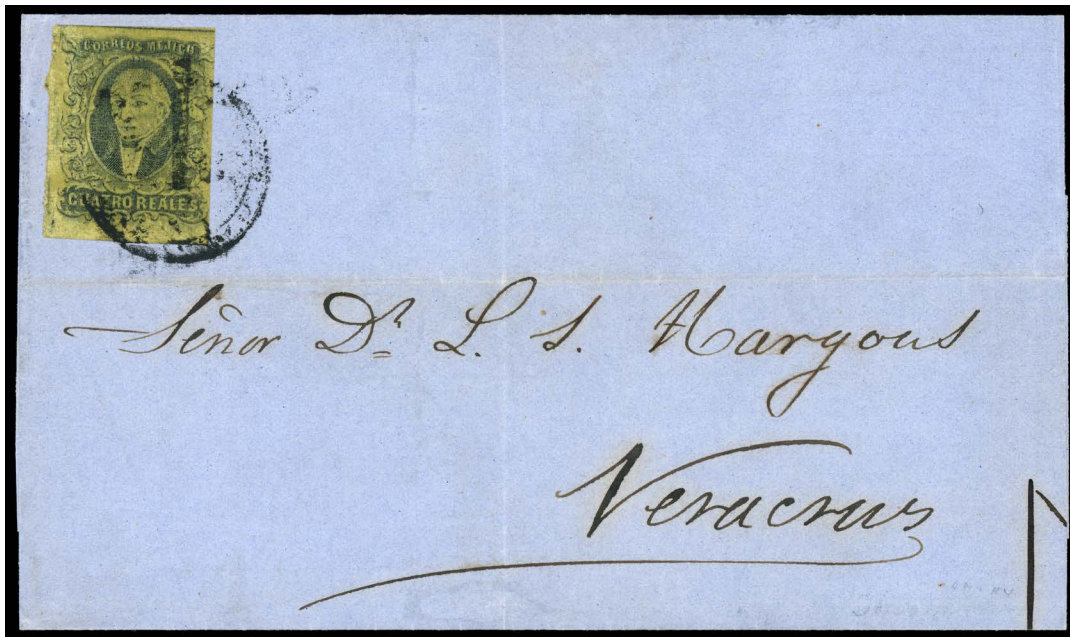 CORREOS MEJICO
CUATRO REALES
Señor Dn. L. S. Hargous
Veracrus